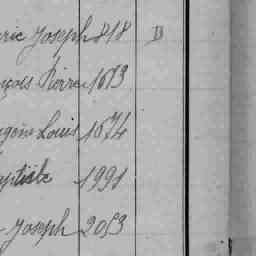 éric Joseph 818 D
nçois Pierre 1673
ugène Louis 1674
aptiste 1991
Joseph 2053